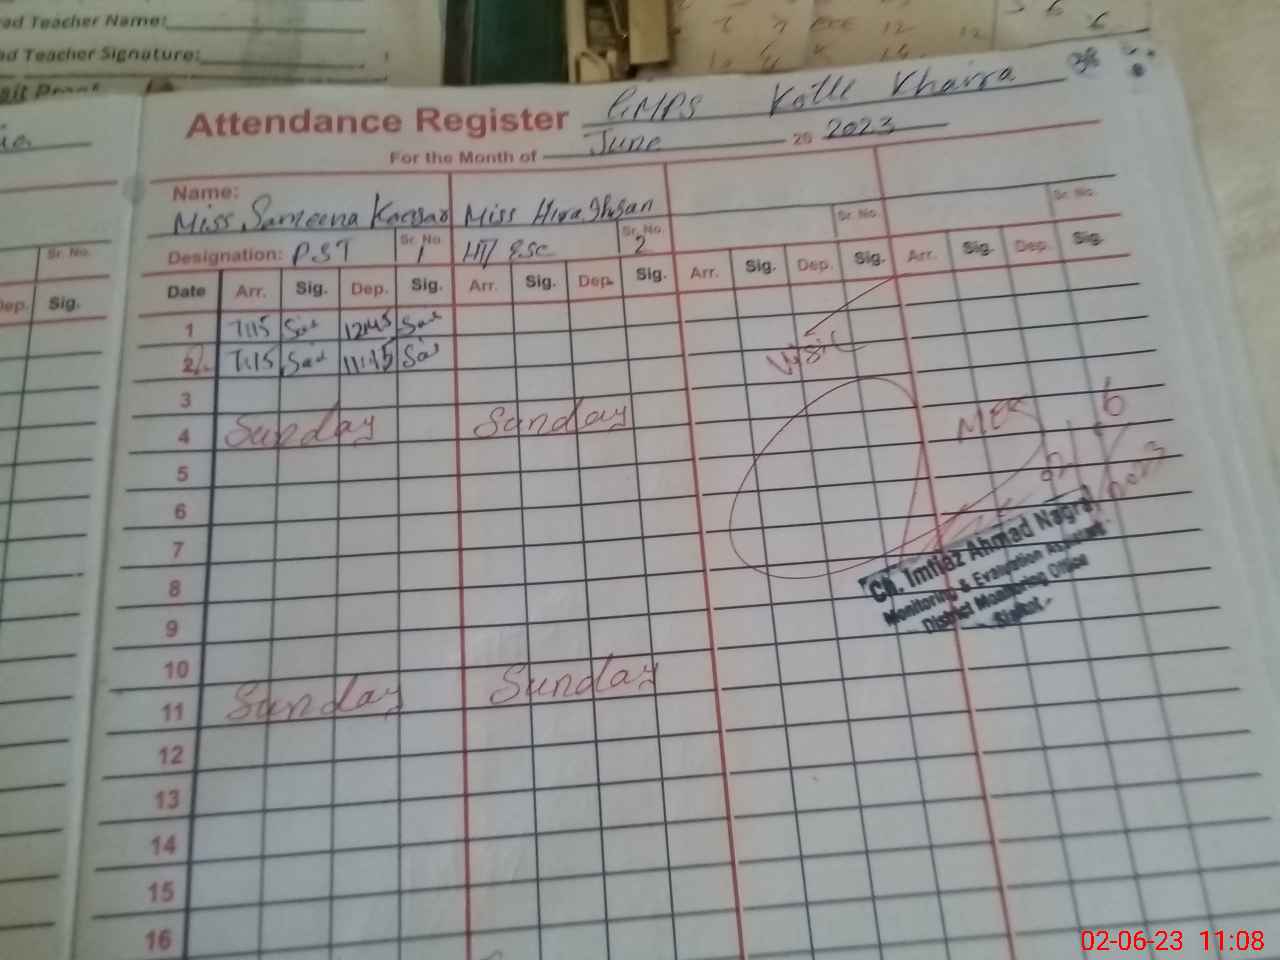 ad Teacher Name:
ad Teacher Signature:
Attendance Register GMPS Kotli Khaira 38
For the Month of June 20 2023
Name:
Miss Sameena Kaesar Miss Hira Ihsan
Designation: PST Sr. No. 1 Sr. No. 2 Sr. No. Sr. No.
Date Arr. Sig. Dep. Sig. Arr. Sig. Dep. Sig. Arr. Sig. Dep. Sig. Arr. Sig. Dep. Sig.
Sr. No.
Dep. Sig.
1 7:15 Sar 12:45 Sar
2 7:15 Sar 11:45 Sar
Visit
3
4 Sunday Sunday
MEA
2/6
2023
5
6
7
Ch. Imtiaz Ahmad Nagra
Monitoring & Evaluation Assistant
District Monitoring Office
Sialkot.
8
9
10
11 Sunday Sunday
12
13
14
15
16
02-06-23 11:08